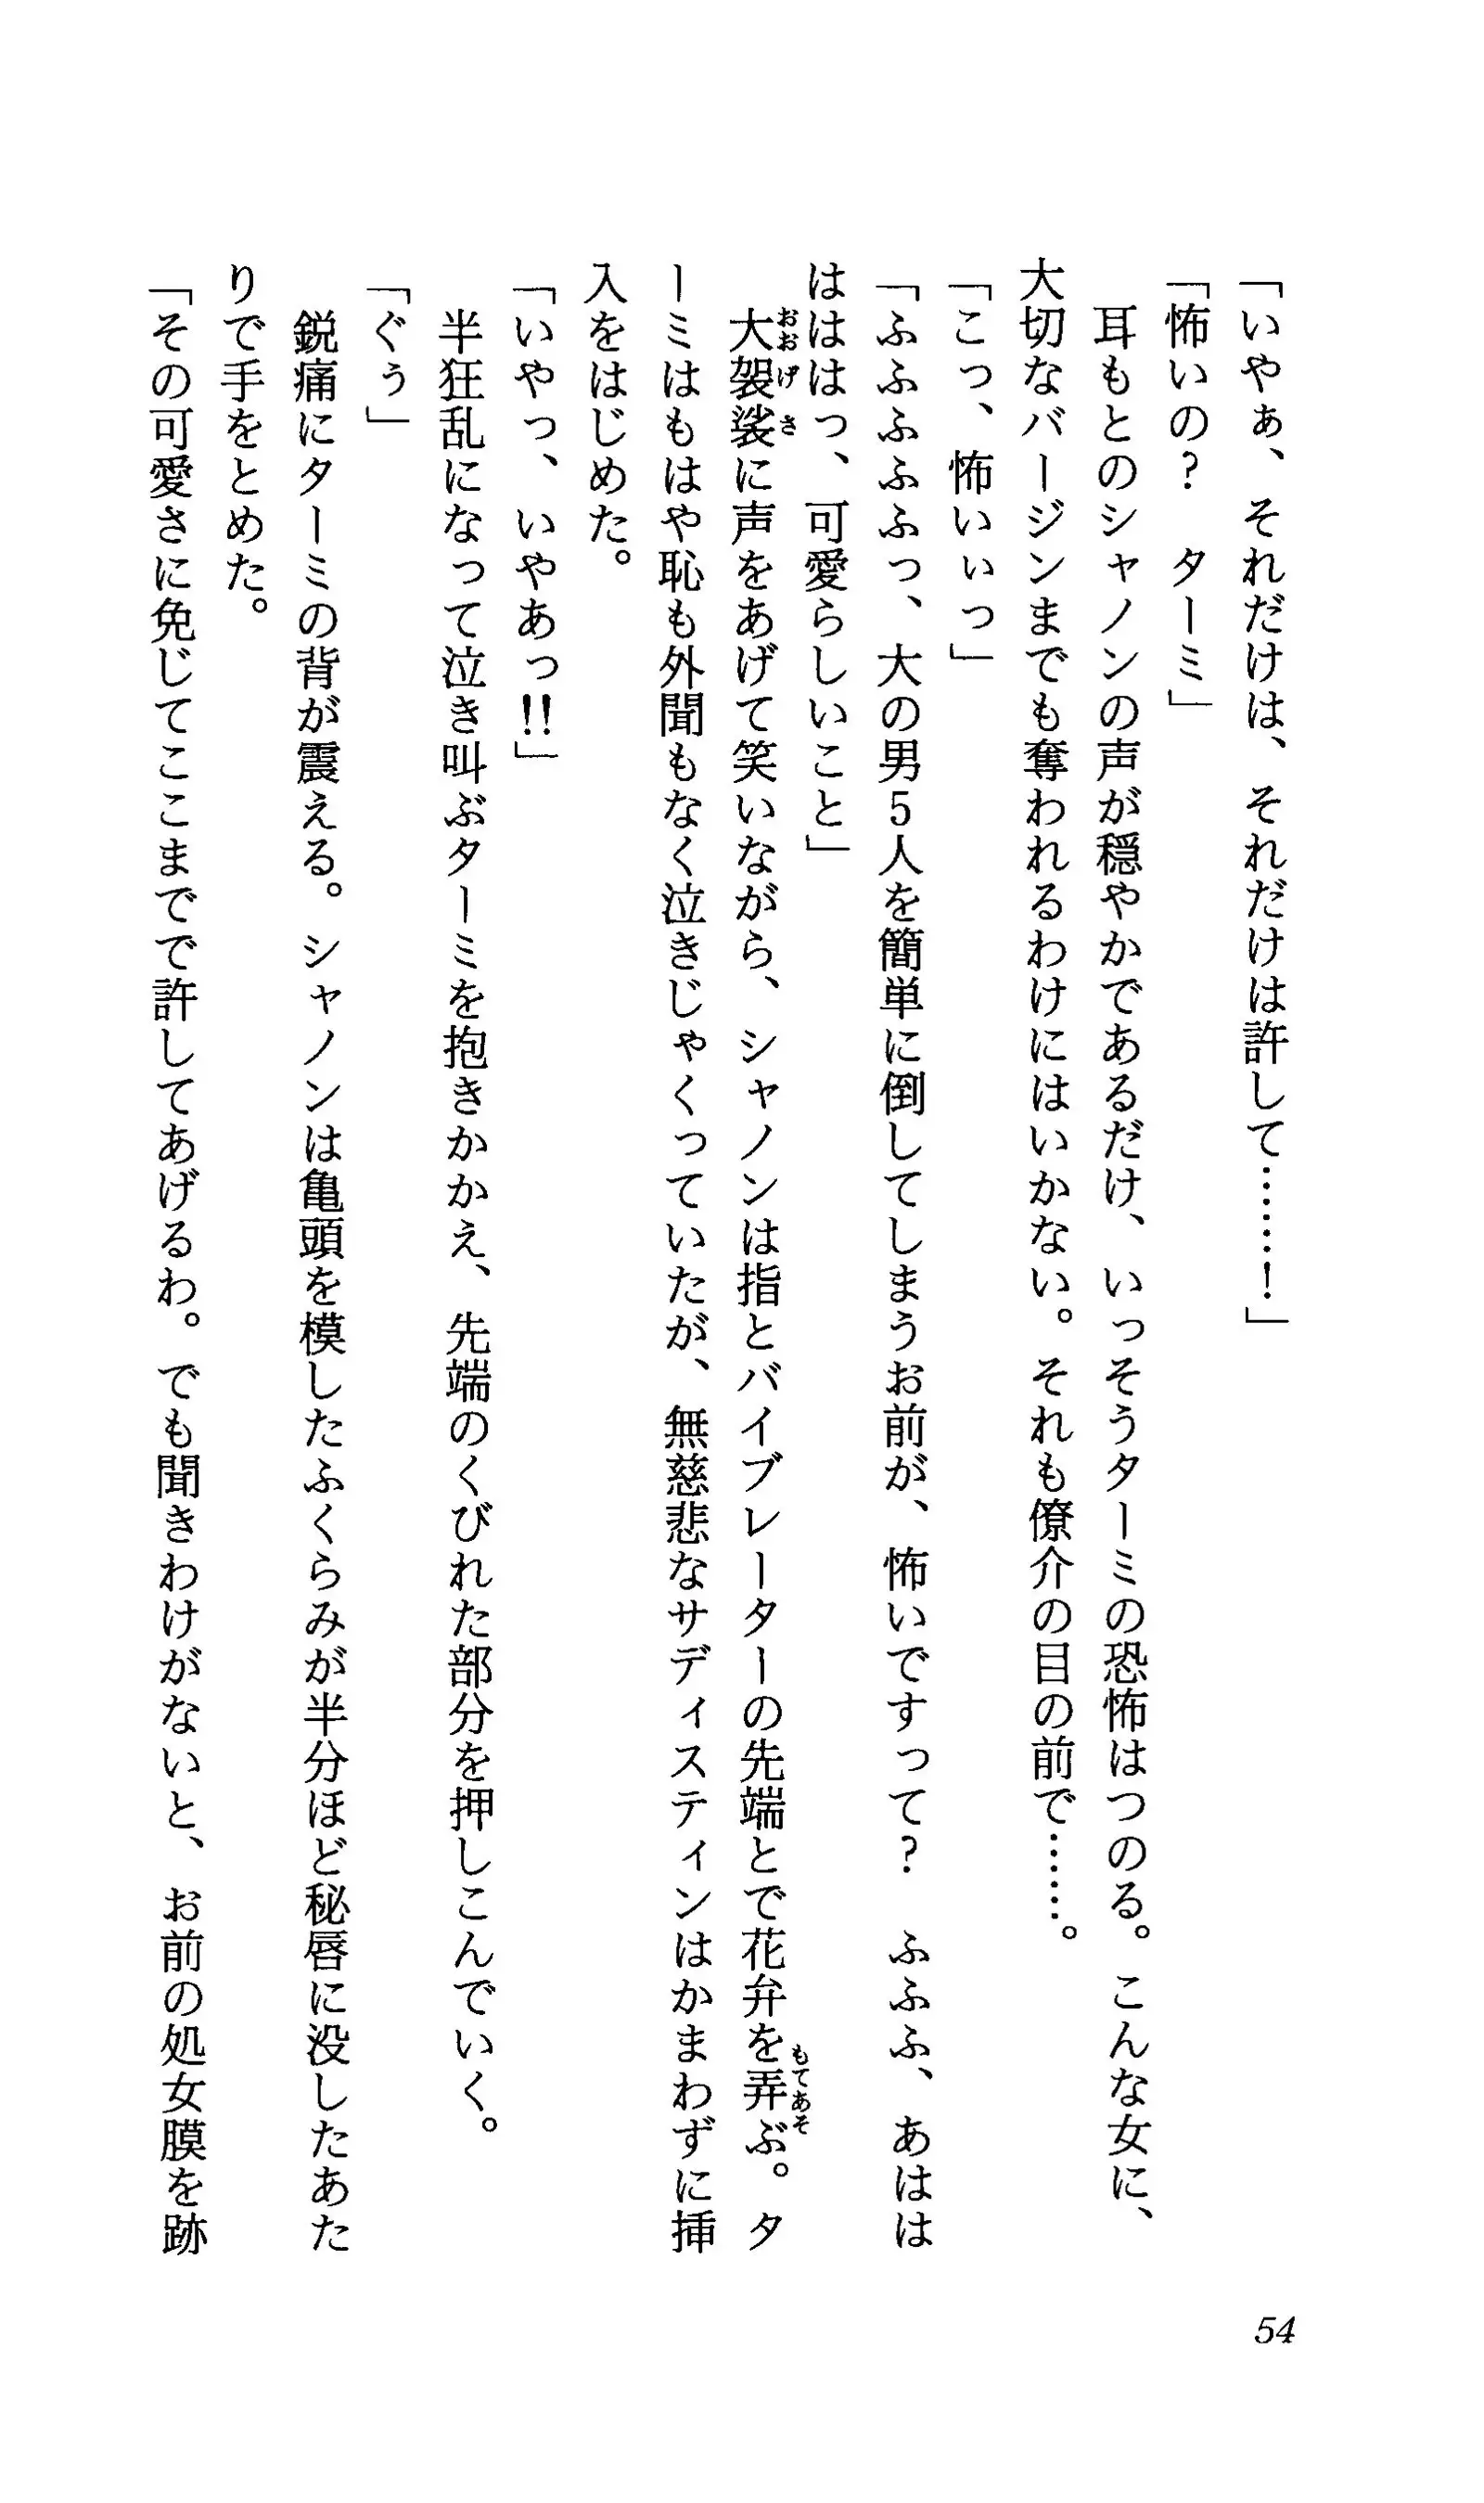 「いやぁ、それだけは、それだけは許して……！」
「怖いの？　ターミ」
　耳もとのシャノンの声が穏やかであるだけ、いっそうターミの恐怖はつのる。こんな女に、
大切なバージンまでも奪われるわけにはいかない。それも僚介の目の前で……。
「こっ、怖いぃっ」
「ふふふふふっ、大の男5人を簡単に倒してしまうお前が、怖いですって？　ふふふ、あはは
はははっ、可愛らしいこと」
　大袈裟に声をあげて笑いながら、シャノンは指とバイブレーターの先端とで花弁を弄ぶ。タ
ーミはもはや恥も外聞もなく泣きじゃくっていたが、無慈悲なサディスティンはかまわずに挿
入をはじめた。
「いやっ、いやあっ!!」
　半狂乱になって泣き叫ぶターミを抱きかかえ、先端のくびれた部分を押しこんでいく。
「ぐぅ」
　鋭痛にターミの背が震える。シャノンは亀頭を模したふくらみが半分ほど秘唇に没したあた
りで手をとめた。
「その可愛さに免じてここまでで許してあげるわ。でも聞きわけがないと、お前の処女膜を跡
54